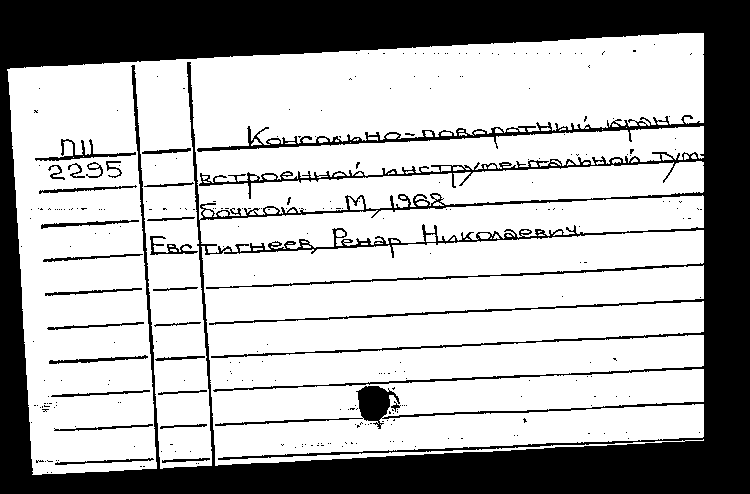 П11
2295
Консольно-поворотный кран с
встроенной инструментальной тум-
бочкой. М, 1968
Евстигнеев, Ренар Николаевич.